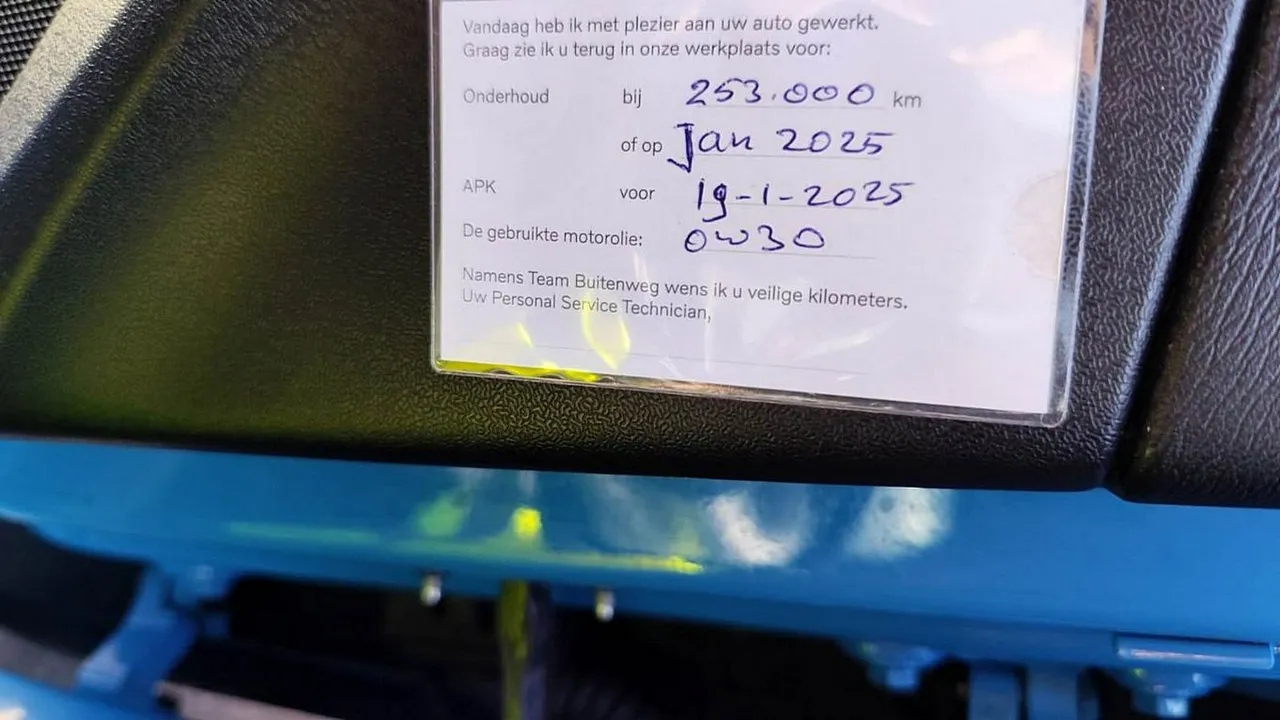 Vandaag heb ik met plezier aan uw auto gewerkt.
Graag zie ik u terug in onze werkplaats voor:
Onderhoud bij 253.000 km
of op Jan 2025
APK voor 19-1-2025
De gebruikte motorolie: 0W30
Namens Team Buitenweg wens ik u veilige kilometers.
Uw Personal Service Technician,